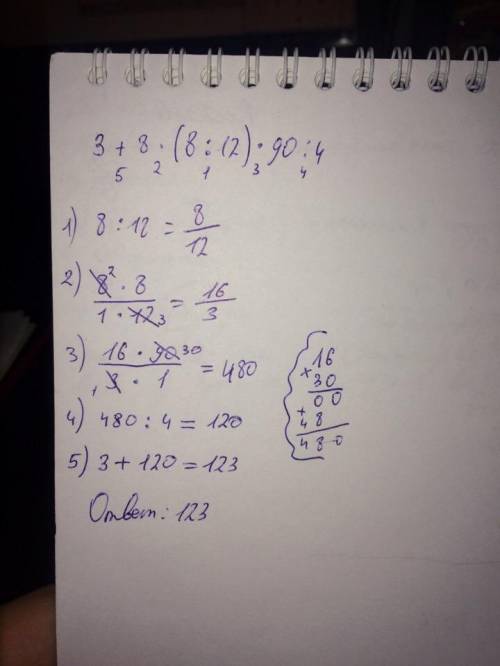 3 + 8 · (8 : 12) · 90 : 4
5 2 1 3 4
1) 8 : 12 = 8/12
2) 8² · 8 / 1 · 12 3 = 16/3
3) 16 · 90 30 / 1 3 · 1 = 480
4) 480 : 4 = 120
5) 3 + 120 = 123
Ответ: 123
16
× 30
00
+ 48
480